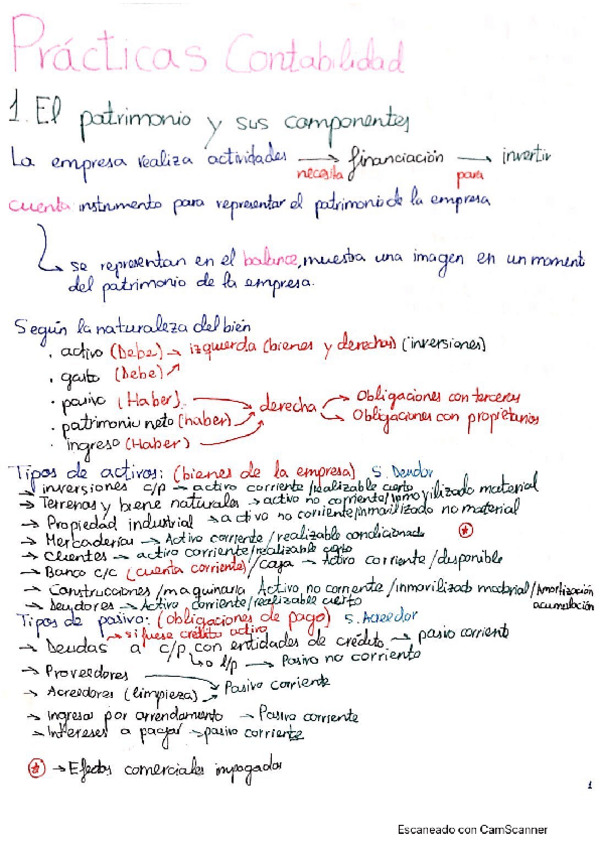 Prácticas Contabilidad
1. El patrimonio y sus componentes
La empresa realiza actividades → financiación → invertir
necesita para
cuenta instrumento para representar el patrimonio de la empresa
se representan en el balance, muestra una imagen en un moment
del patrimonio de la empresa.
Según la naturaleza del bien
· activo (Debe) → izquierda (bienes y derechos) (inversiones)
· gasto (Debe)
· pasivo (Haber) → derecha → Obligaciones con terceros
· patrimonio neto (haber) → Obligaciones con propietarios
· ingreso (Haber)
Tipos de activos: (bienes de la empresa) S. Deudor
→ inversiones c/p → activo corriente/realizable cierto
→ Terrenos y biene naturales → activo no corriente/inmovilizado material
→ Propiedad industrial → activo no corriente/inmovilizado no material
→ Mercaderías → Activo corriente/realizable condicionado
→ Clientes → activo corriente/realizable cierto
→ Banco c/c (cuenta corriente)/caja → Activo corriente/disponible
→ Construcciones/maquinaria Activo no corriente/inmovilizado material/Amortización
acumulación
→ Deudores → Activo corriente/realizable cierto
Tipos de pasivo: (obligaciones de pago) S. Acreedor
→ si fuese crédito activo
→ Deudas a c/p con entidades de crédito → pasivo corriente
→ o l/p → Pasivo no corriente
→ Proveedores
→ Acreedores (limpieza) → Pasivo corriente
→ Ingresos por arrendamiento → Pasivo corriente
→ Intereses a pagar → pasivo corriente
→ Efectos comerciales impagados
1
Escaneado con CamScanner